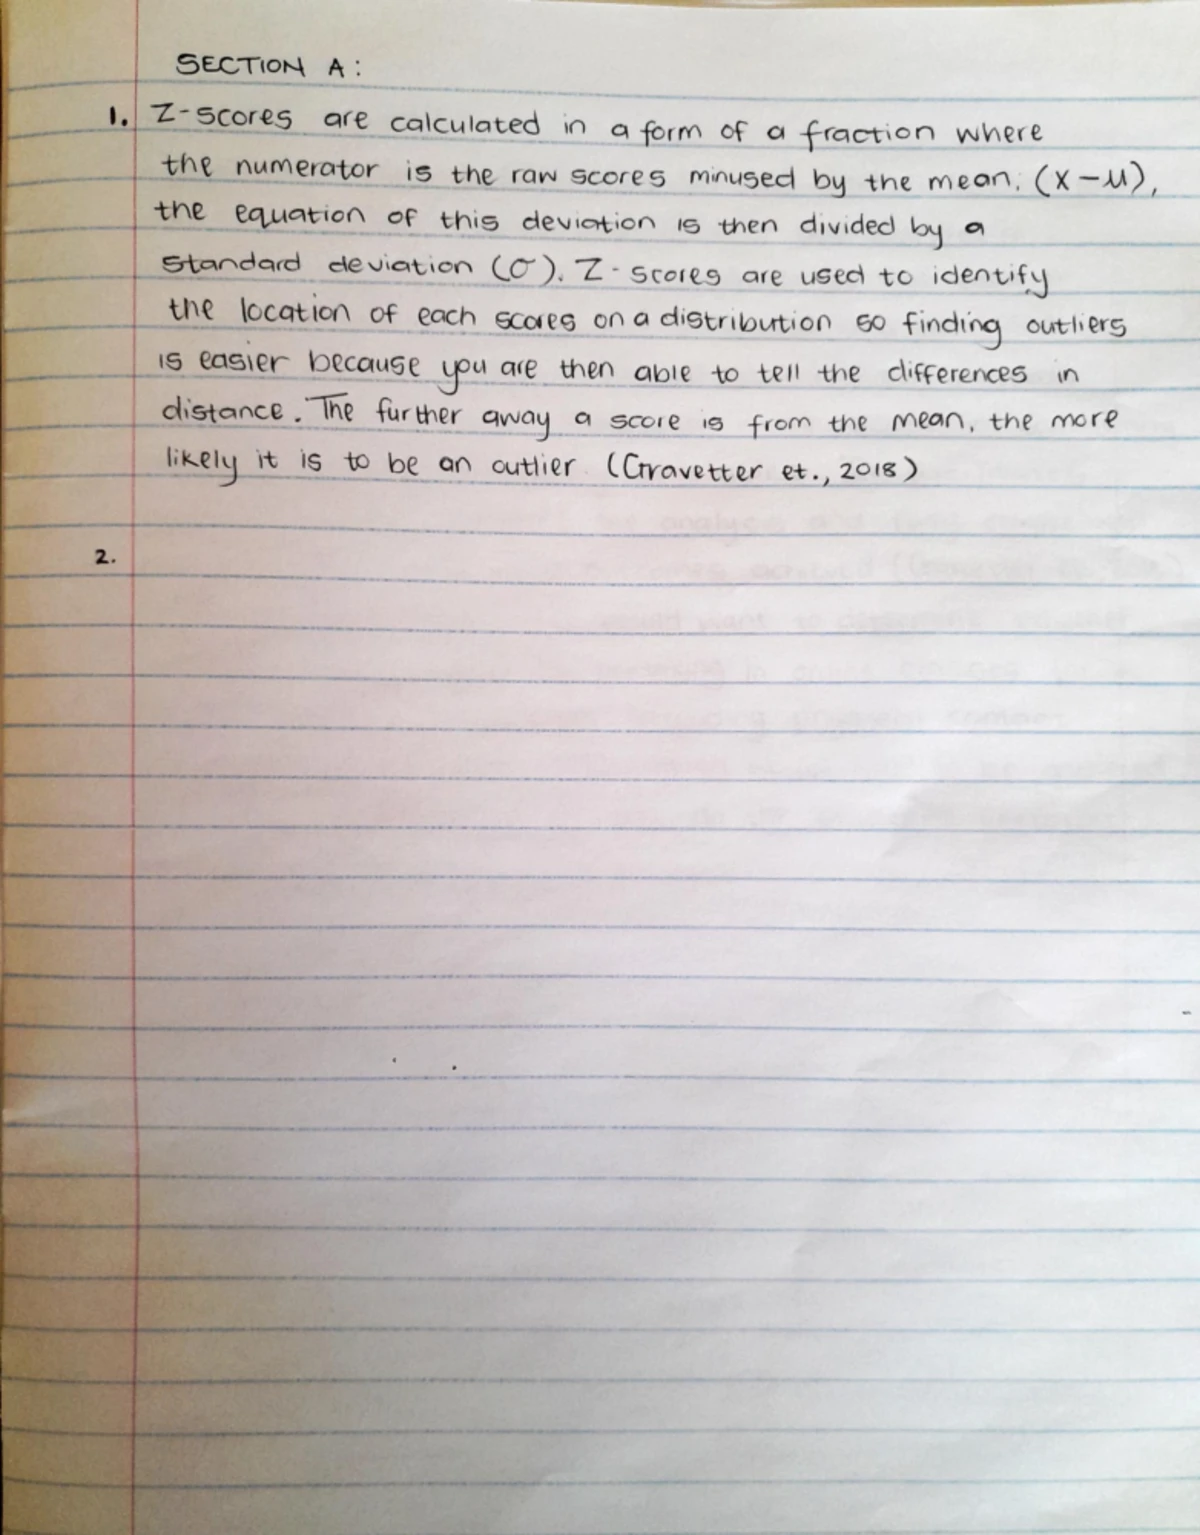 SECTION A:
1. Z-scores are calculated in a form of a fraction where
the numerator is the raw scores minused by the mean; (x-μ),
the equation of this deviation is then divided by a
standard deviation (σ). Z-scores are used to identify
the location of each scores on a distribution so finding outliers
is easier because you are then able to tell the differences in
distance. The further away a score is from the mean, the more
likely it is to be an outlier (Gravetter et., 2018)
2.